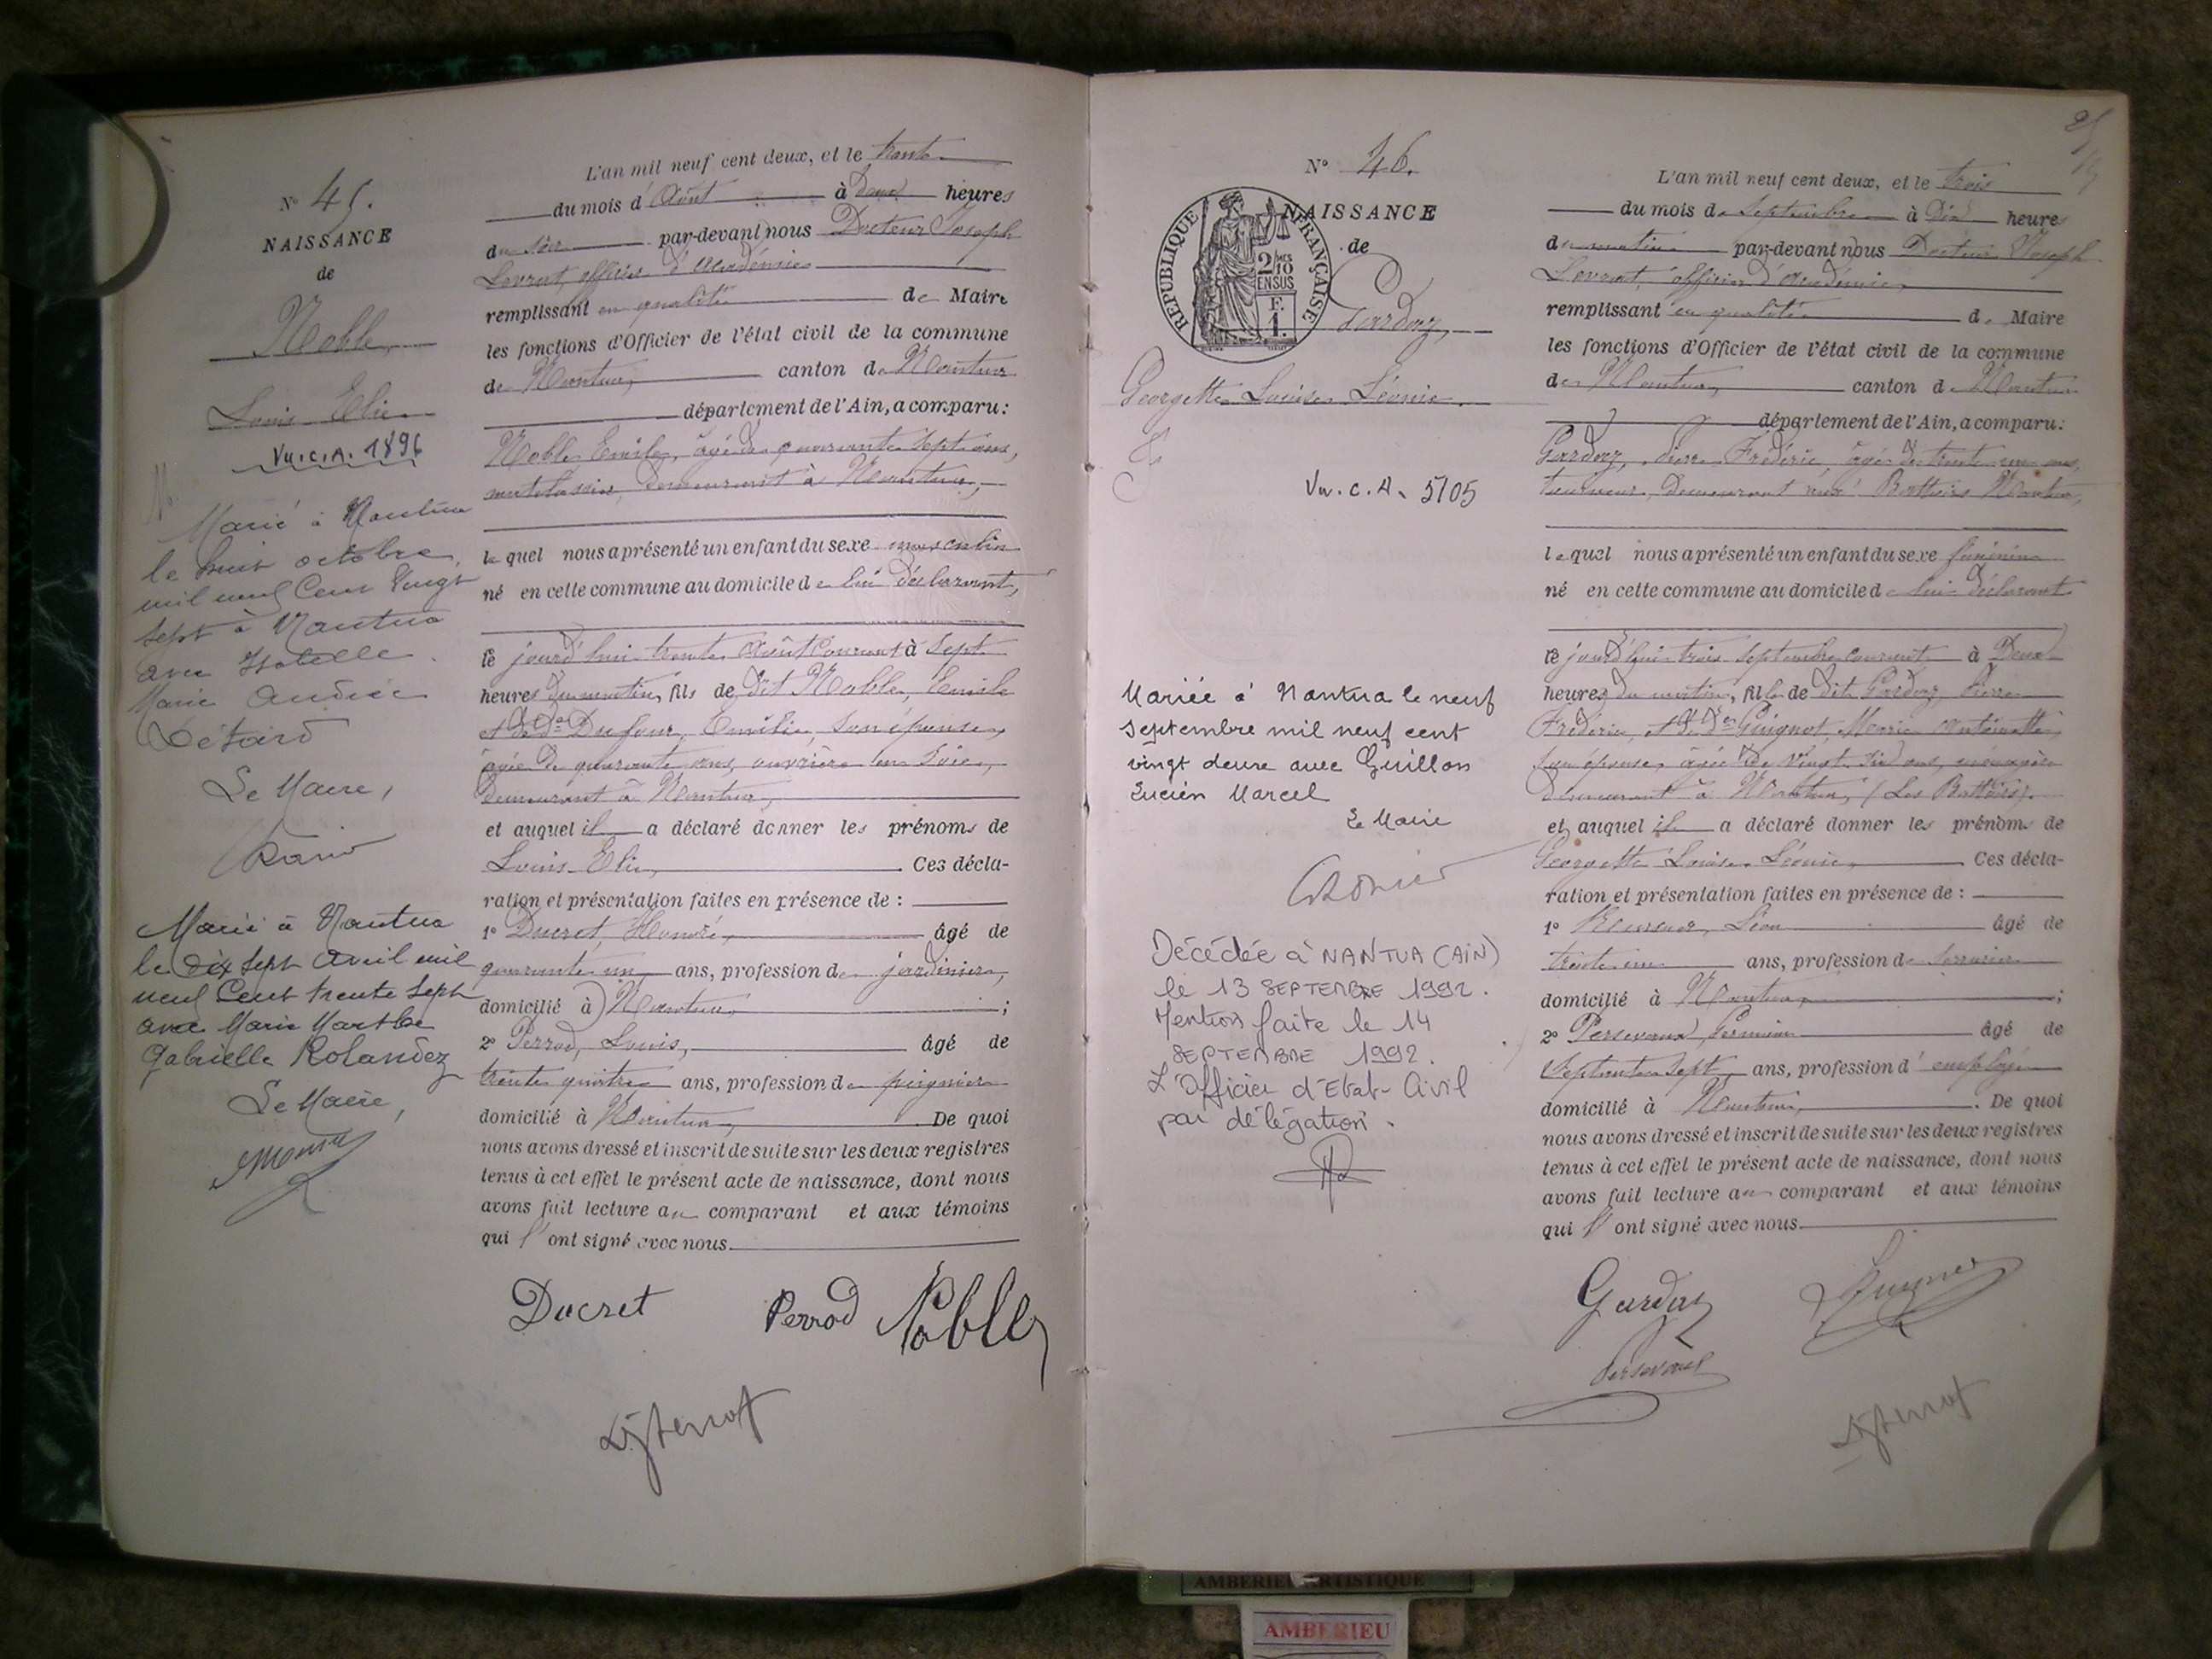 N° 45.
NAISSANCE
de
Noble
Louis Elie
Vu.c.A. 1896
Marié à Nantua
le huit octobre
mil neuf Cent Vingt
sept à Nantua
avec
Marie Andrée
Détard
Le Maire,
Marié à Nantua
le dix sept Avril mil
neuf Cent trente sept
avec Marie Marthe
Gabrielle Rolandez
Le Maire,
L'an mil neuf cent deux, et le trente
du mois d'Août à Deux heures
du soir par-devant nous Docteur Joseph
Levrat, officier d'Académie
remplissant en qualité de Maire
les fonctions d'Officier de l'état civil de la commune
de Nantua, canton de Nantua
département de l'Ain, a comparu:
Noble Emile, âgé de quarante sept ans,
matelassier, demeurant à Nantua,
lequel nous a présenté un enfant du sexe masculin
né en cette commune au domicile de lui déclarant,
le jourd'hui trente Août courant à Sept
heures du matin, fils de dit Noble, Emile
et de De Dufour, Emélie, son épouse,
âgée de quarante ans, ouvrière en soie,
demeurant à Nantua,
et auquel il a déclaré donner les prénoms de
Louis-Elie, Ces décla-
ration et présentation faites en présence de :
1° Ducret, Honoré, âgé de
quarante un ans, profession de jardinier,
domicilié à Nantua, ;
2° Perrod, Louis, âgé de
trente quatre ans, profession de peignier
domicilié à Nantua, . De quoi
nous avons dressé et inscrit de suite sur les deux registres
tenus à cet effet le présent acte de naissance, dont nous
avons fait lecture au comparant et aux témoins
qui l'ont signé avec nous.
Ducret Perrod Noble
N° 46.
NAISSANCE
de
REPUBLIQUE FRANÇAISE
2/10
EN SUS
F.
1.
Gardaz
Georgette Louise Léonie.
Vu. c. A. 5105
Mariée à Nantua le neuf
septembre mil neuf cent
vingt deux avec Guillon
Lucien Marcel
Le Maire
Décédée à NANTUA (AIN)
le 13 SEPTEMBRE 1992.
Mention faite le 14
SEPTEMBRE 1992.
L'Officier d'Etat-Civil
par délégation.
L'an mil neuf cent deux, et le trois
du mois de Septembre à Dix heures
du matin par-devant nous Docteur Joseph
Levrat, officier d'Académie,
remplissant en qualité de Maire
les fonctions d'Officier de l'état civil de la commune
de Nantua, canton de Nantua
département de l'Ain, a comparu:
Gardaz, Pierre Frédéric, âgé de trente un ans,
tourneur, demeurant Nantua,
lequel nous a présenté un enfant du sexe féminin
né en cette commune au domicile de lui déclarant
le jourd'hui trois septembre courant à Deux
heures du matin, fille de dit Gardaz, Pierre
Frédéric, et de De Guignot, Marie Antoinette,
son épouse, âgée de vingt six ans, ménagère
demeurant à Nantua, (Les Battoirs).
et auquel il a déclaré donner les prénoms de
Georgette Louise Léonie, Ces décla-
ration et présentation faites en présence de :
1° Léon âgé de
trente un ans, profession de serrurier
domicilié à Nantua, ;
2° Germain âgé de
Septante Sept ans, profession d'employé
domicilié à Nantua, . De quoi
nous avons dressé et inscrit de suite sur les deux registres
tenus à cet effet le présent acte de naissance, dont nous
avons fait lecture au comparant et aux témoins
qui l'ont signé avec nous.
Gardaz
AMBERIEU ARTISTIQUE
AMBERIEU